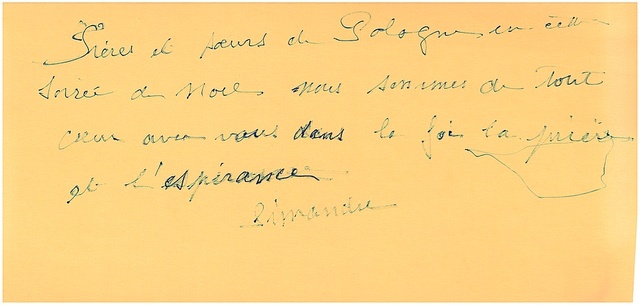 Frères et sœurs de Pologne en cette
soirée de Noël nous sommes de tout
cœur avec vous dans la foi la prière
et l'espérance
Simandre